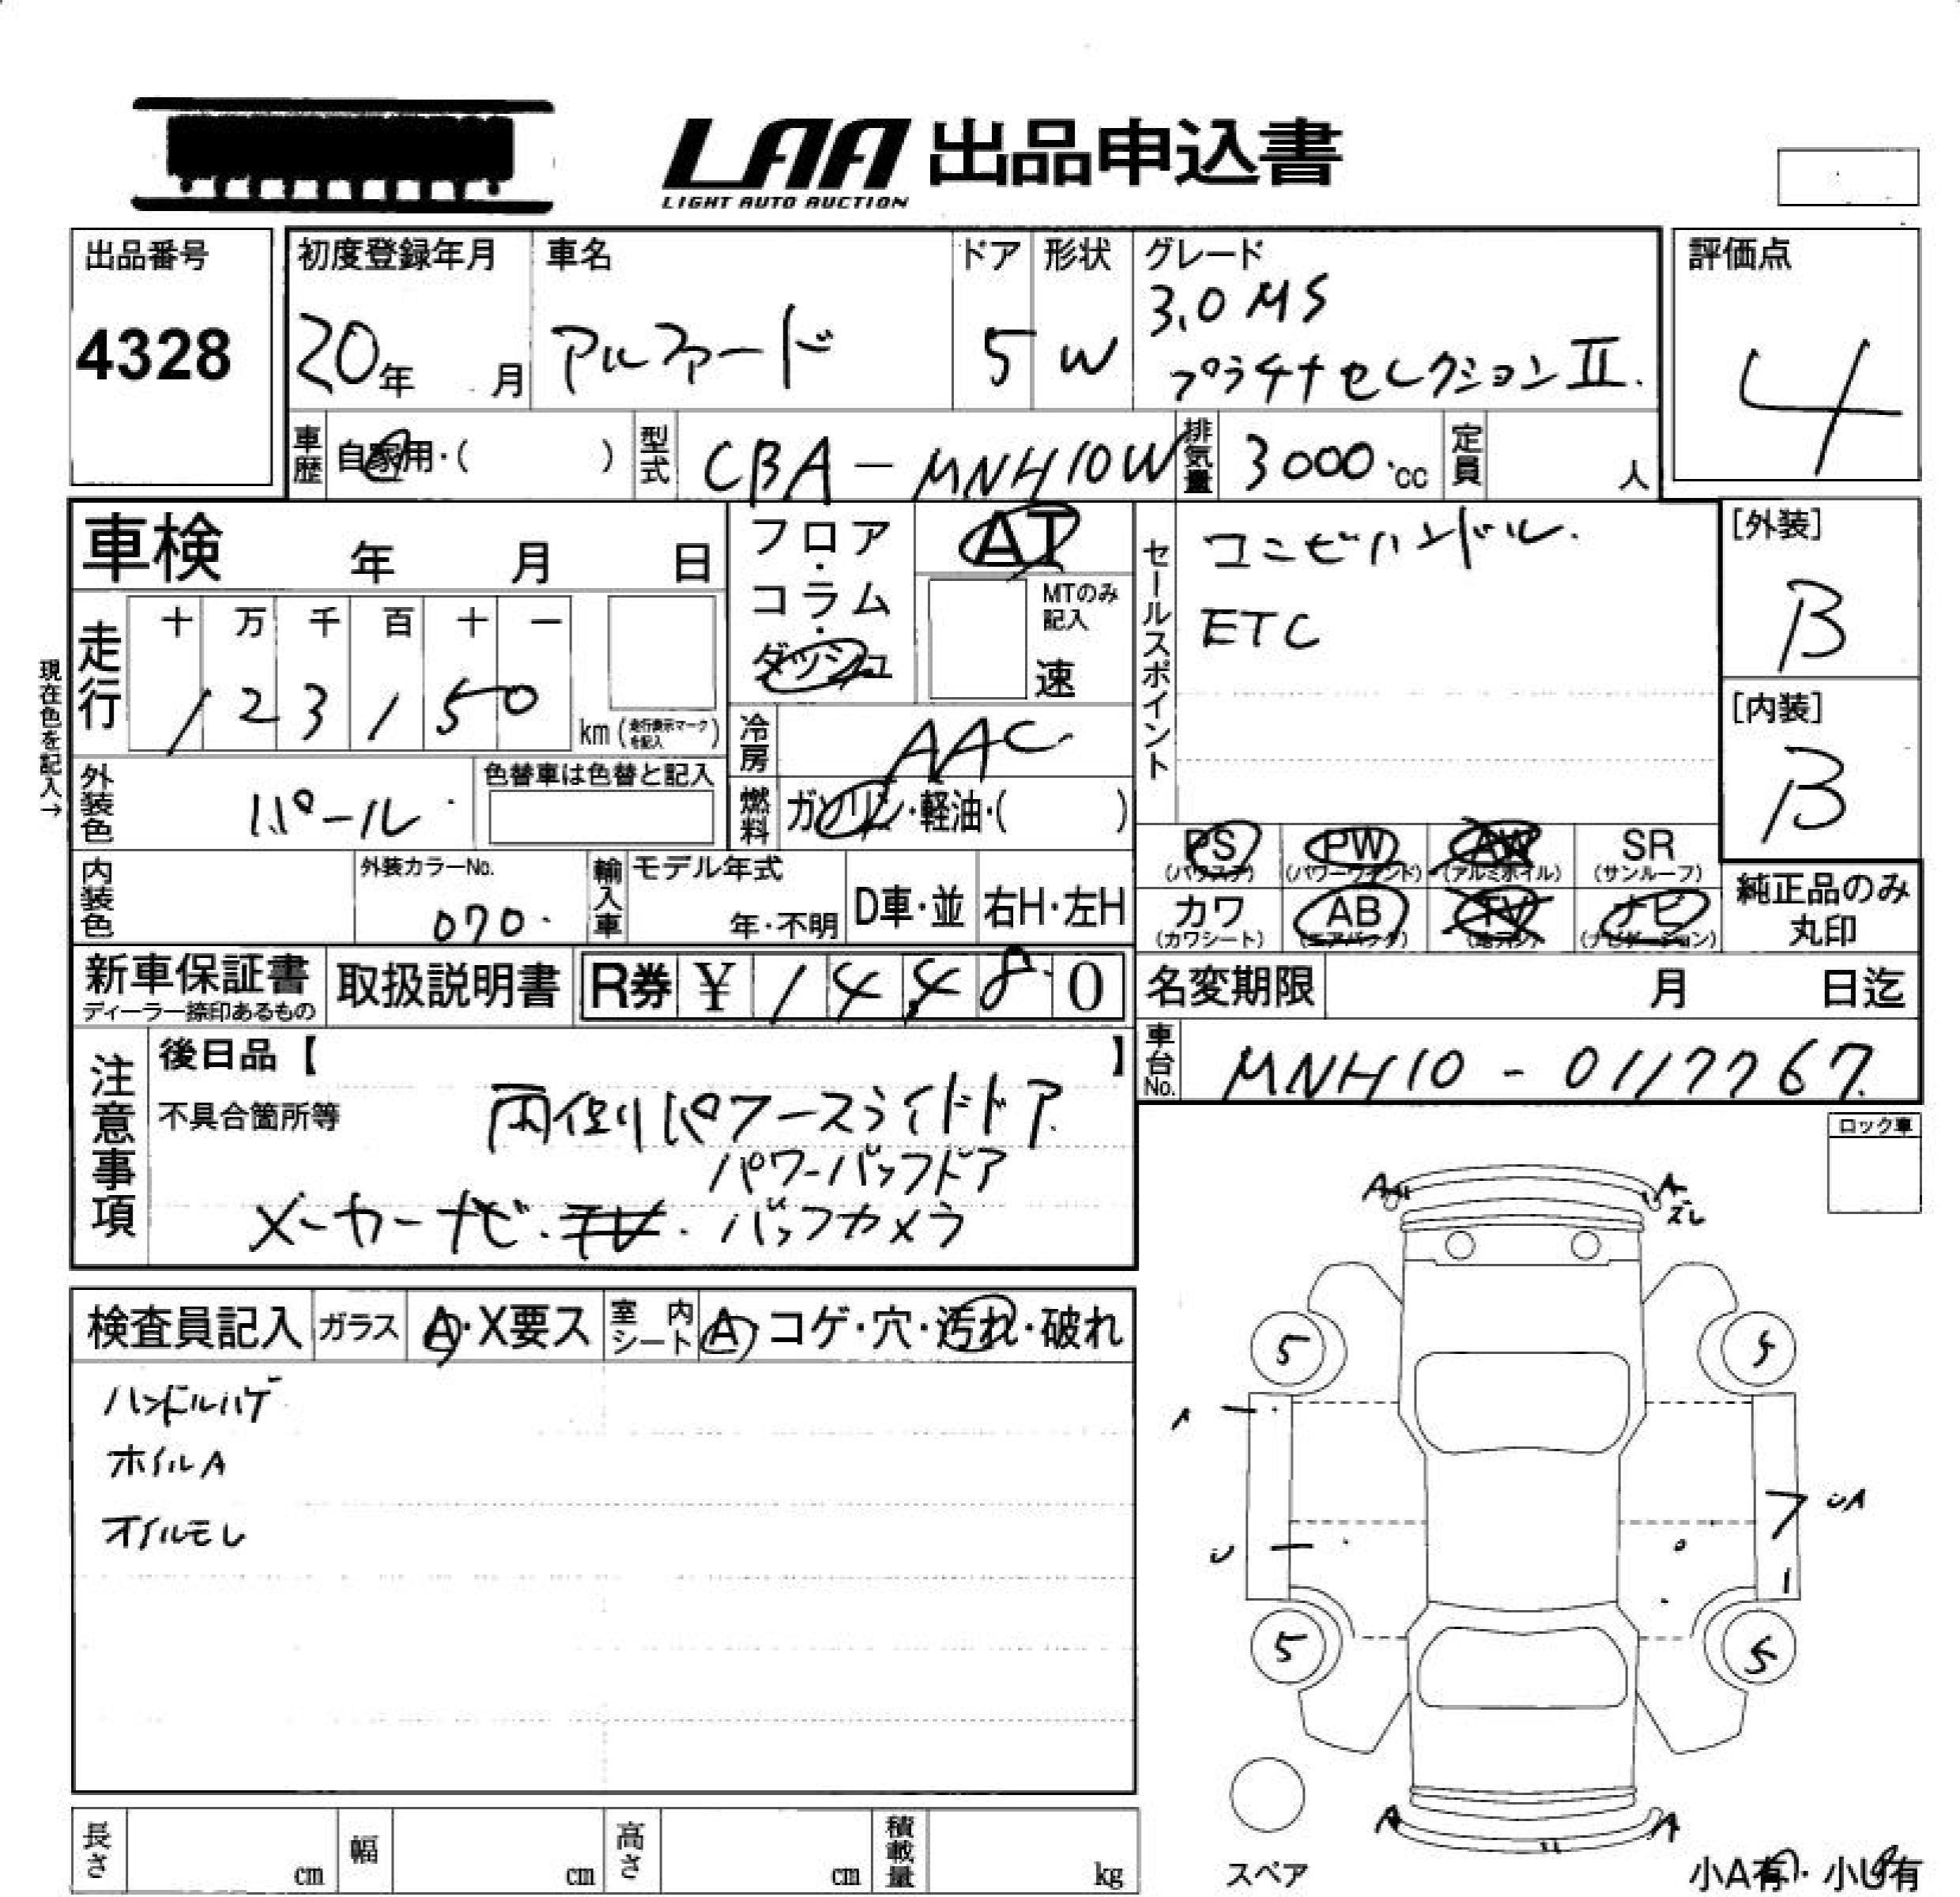 LAA 出品申込書
LIGHT AUTO AUCTION
出品番号
4328
初度登録年月
20年 月
車名
アルファード
ドア
5
形状
W
グレード
3.0 MS
プラチナセレクションII.
評価点
4
車歴 自家用・( )
型式 CBA-MNH10W
排気量 3000.cc
定員 人
車検 年 月 日
フロア・コラム・ダッシュ
AT
MTのみ記入
速
セールスポイント
コンビハンドル.
ETC
[外装]
B
[内装]
B
現在色を記入→
走行
十 万 千 百 十 一
1 2 3 1 5 0
km (走行表示マークを記入)
冷房 AAC
外装色 パール
色替車は色替と記入
燃料 ガソリン・軽油・( )
PS (パワステ) PW (パワーウインド) AW (アルミホイル) SR (サンルーフ)
カワ (カワシート) AB (エアバック) TV (地デジ) ナビ (ナビゲーション)
純正品のみ丸印
内装色
外装カラーNo.
070.
輸入車 モデル年式
年・不明
D車・並 右H・左H
新車保証書
ディーラー捺印あるもの
取扱説明書
R券 ¥ 1 4 4 8 0
名変期限 月 日迄
車台No. MNH10-0117767.
注意事項
後日品【 】
不具合箇所等
両側パワースライドドア.
パワーバックドア
メーカーナビ.テレビ.バックカメラ
ロック車
A A
ズレ
検査員記入 ガラス A・X要ス 室内シート A・コゲ・穴・汚れ・破れ
ハンドルハゲ
ホイルA
オイルモレ
5 5
A
UA
U
5 5
A A
スペア
小A有・小U有
長さ cm 幅 cm 高さ cm 積載量 kg